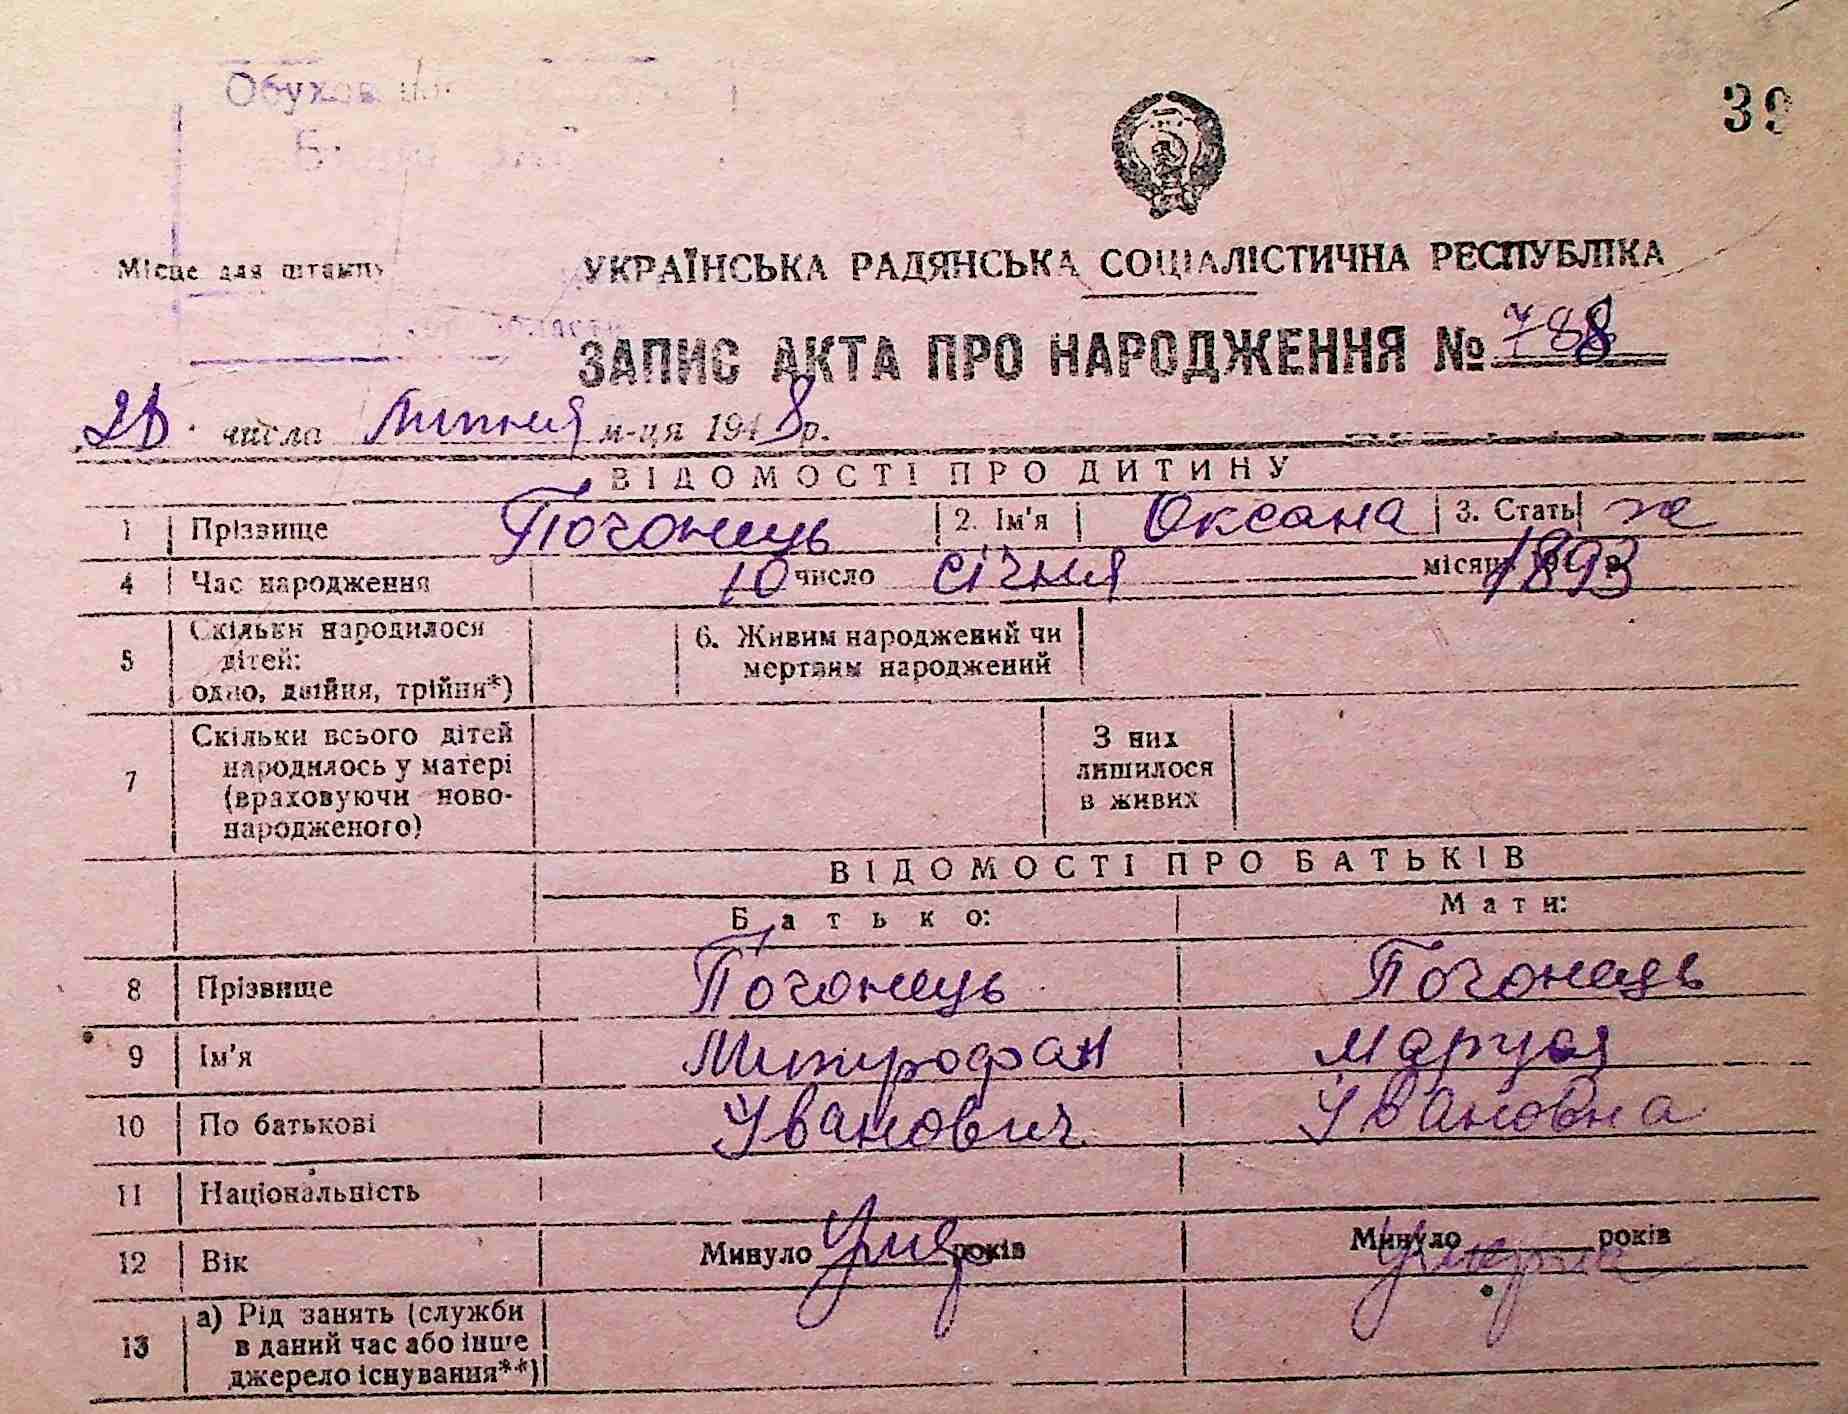 Обухов
39
Місце для штампу
УКРАЇНСЬКА РАДЯНСЬКА СОЦІАЛІСТИЧНА РЕСПУБЛІКА
області
ЗАПИС АКТА ПРО НАРОДЖЕННЯ № 788
28 числа Липня м-ця 1948 р.
ВІДОМОСТІ ПРО ДИТИНУ
1 Прізвище Погонець 2. Ім'я Оксана 3. Стать ж
4 Час народження 10 число січня місяця 1893
5 Скільки народилося дітей: одно, двійня, трійня*) 6. Живим народжений чи мертвим народжений
7 Скільки всього дітей народилось у матері (враховуючи ново-народженого) З них лишилося в живих
ВІДОМОСТІ ПРО БАТЬКІВ
Батько: Мати:
8 Прізвище Погонець Погонець
9 Ім'я Митрофан Маруся
10 По батькові Іванович Івановна
11 Національність
12 Вік Минуло Умер років Минуло Умерла років
13 а) Рід занять (служби в даний час або інше джерело існування**)